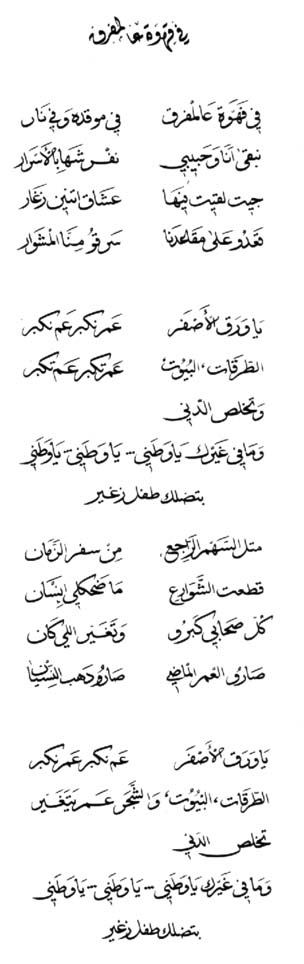 في قهوة عالمفرق
في قهوة عالمفرق في موقدة وفي نار
نبقى أنا وحبيبي نفرشها بالأسرار
جيت لقيت فيها عشاق اتنين زغار
قعدو على مقاعدنا سرقو منا المشوار
يا ورق الأصفر عم نكبر عم نكبر
الطرقات، البيوت عم تكبر عم تكبر
وتخلص الدني
وما في غيرك يا وطني... يا وطني... يا وطني
بتضلك طفل زغير
متل السهم الراجع من سفر الزمان
قطعت الشوارع ما ضحكلي إنسان
كل صحابي كبرو وتغير اللي كان
صارو العمر الماضي صارو دهب النسيان
يا ورق الأصفر عم نكبر عم نكبر
الطرقات، البيوت، والشجر عم يتغير
تخلص الدني
وما في غيرك يا وطني... يا وطني... يا وطني
بتضلك طفل زغير